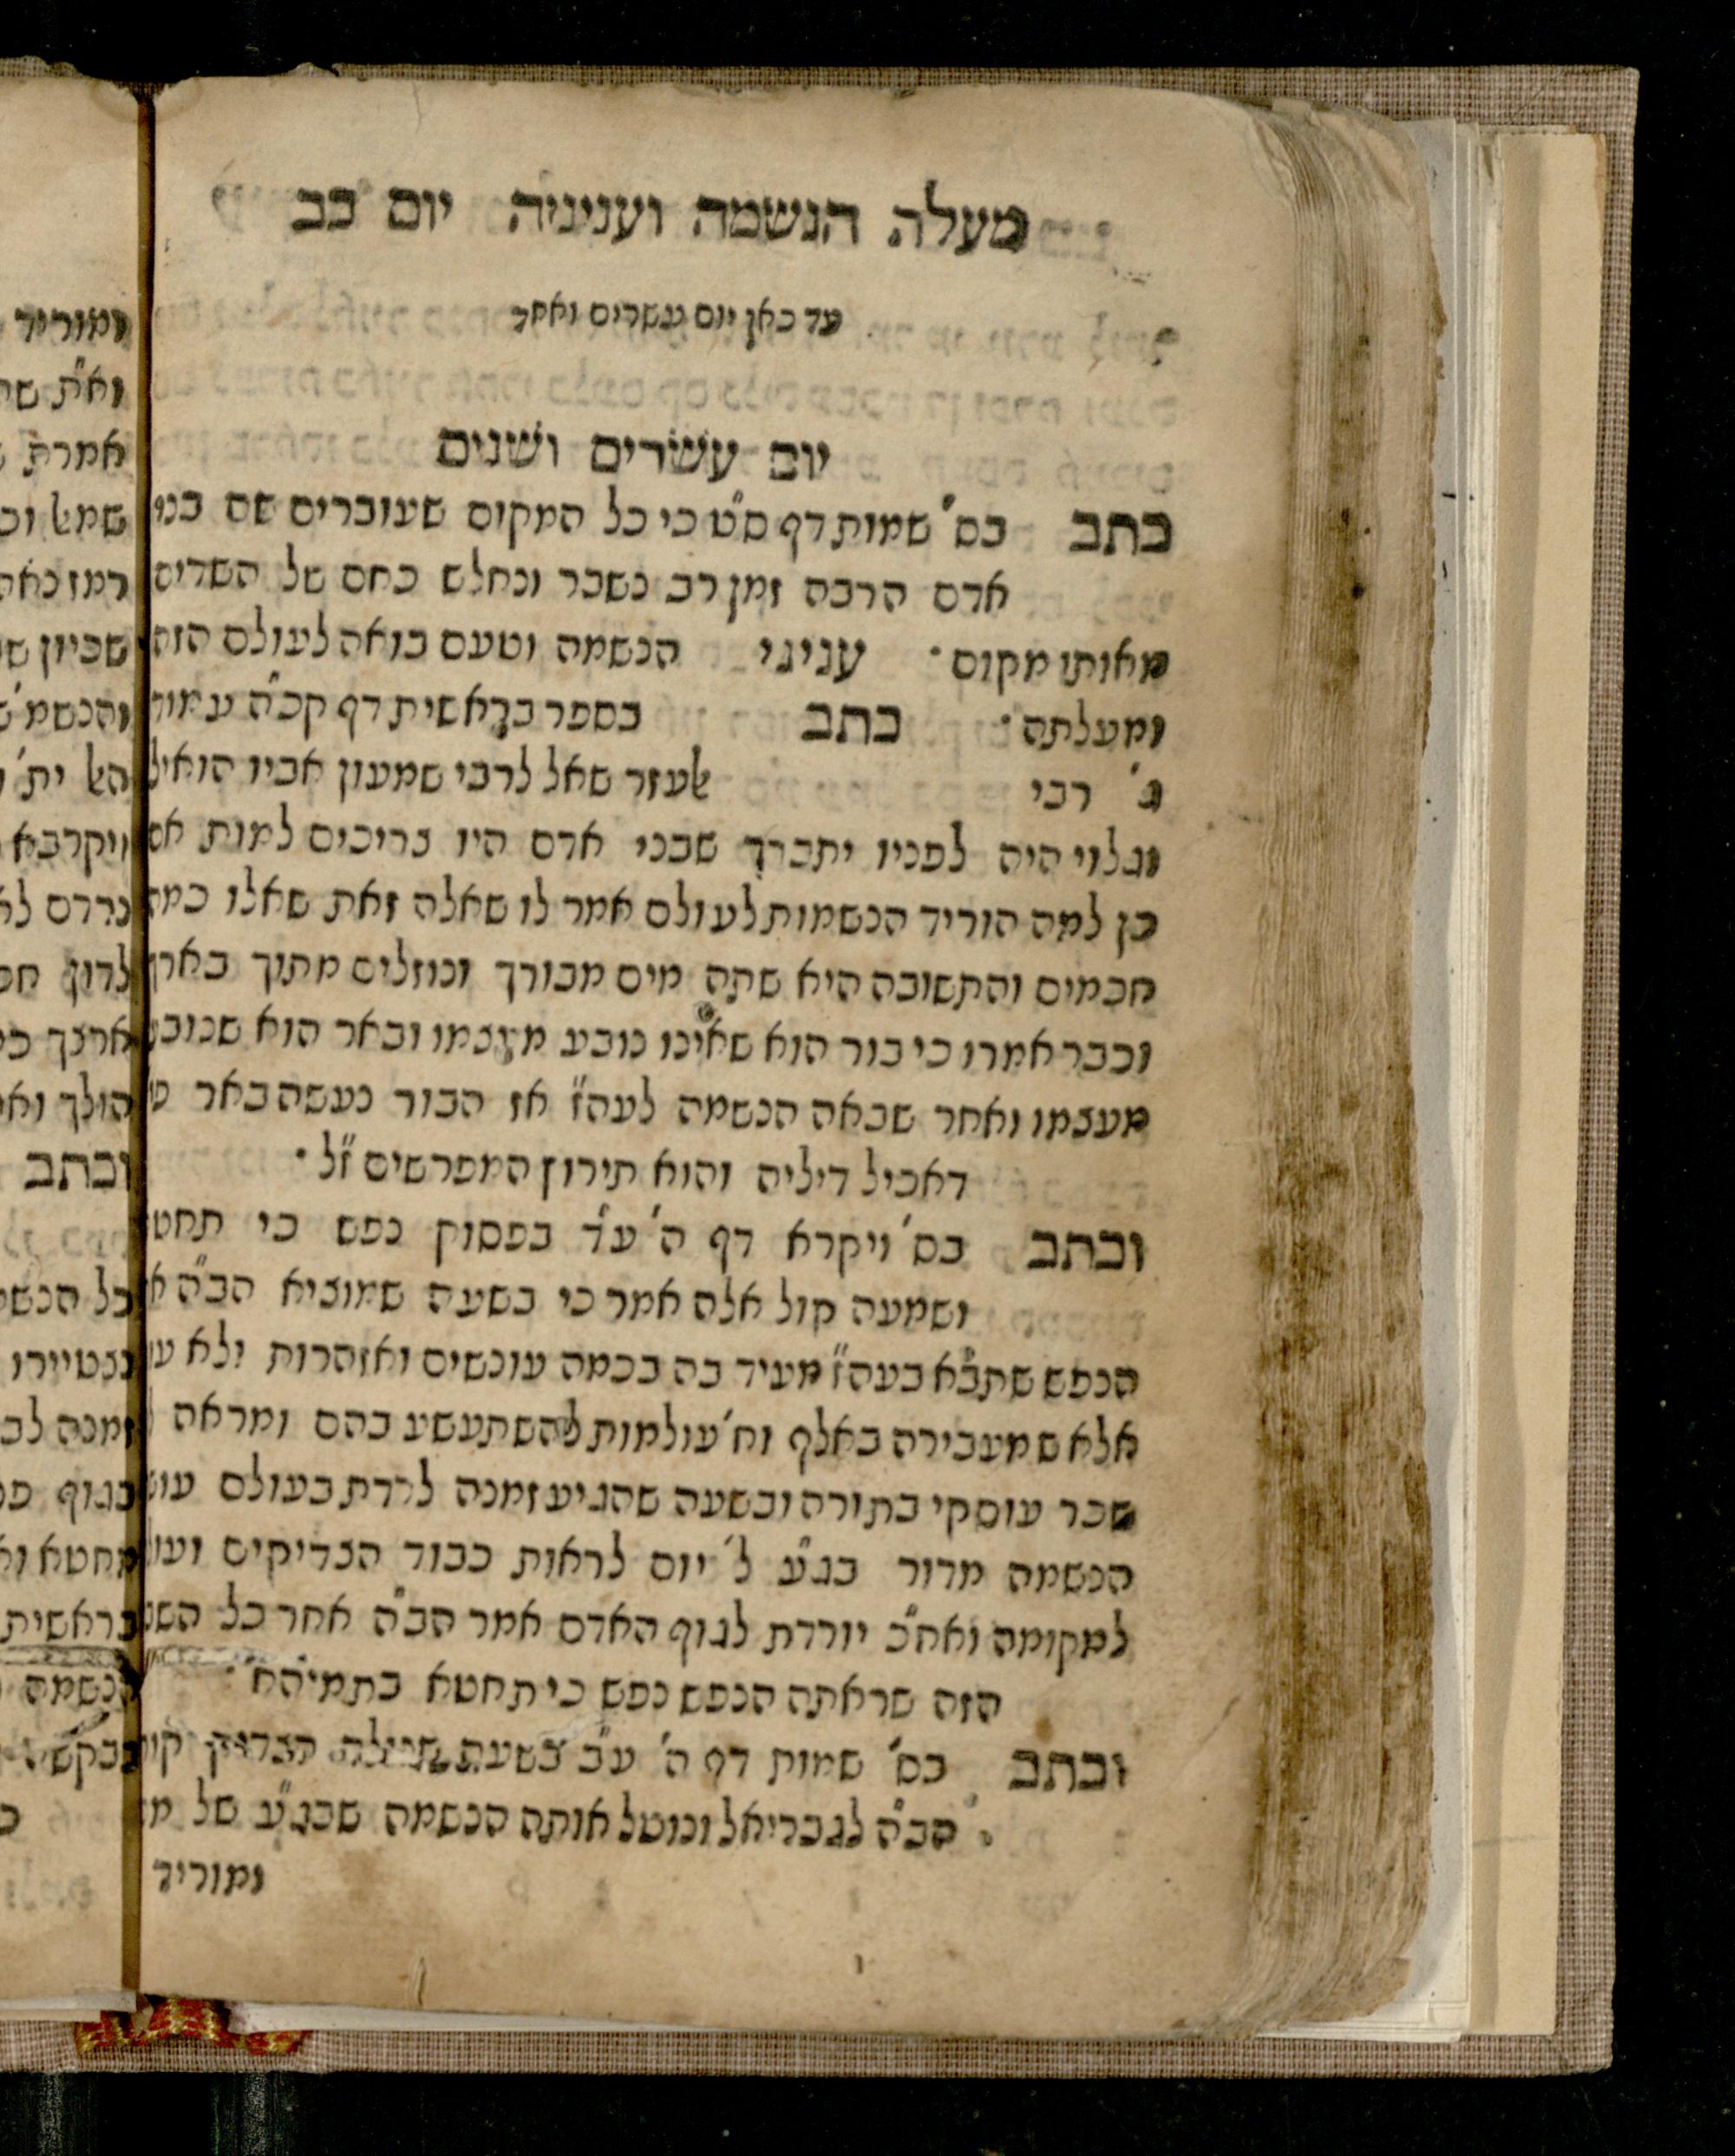 מעלה הנשמה ועניניה יום כב
עד כאן יום עשרים ואחד
יום עשרים ושנים
כתב בס' שמות דף ס"ט כי כל המקום שעוברים שם בני
אדם הרבה זמן רב נשבר ונחלש כחם של השדים
מאותו מקום· ענייני הנשמה וטעם בואה לעולם הזה
ומעלתה· כתב בספר בראשית דף קכ"ה עמוד
ג' רבי אלעזר שאל לרבי שמעון אביו הואיל
וגלוי היה לפניו יתברך שבני אדם היו צריכים למות אם
כן למה הוריד הנשמות לעולם אמר לו שאלה זאת שאלו כמה
חכמים והתשובה היא שתה מים מבורך ונוזלים מתוך בארך
וכבר אמרו כי בור הוא שאינו נובע מעצמו ובאר הוא שנובע
מעצמו ואחר שבאה הנשמה לעה"ז אז הבור נעשה באר
דאכיל דיליה והוא תירוץ המפרשים ז"ל·
וכתב בס' ויקרא דף ה' ע"ד בפסוק נפש כי תחטא
ושמעה קול אלה אמר כי בשעה שמוציא הב"ה
הנפש שתבא בעה"ז מעיד בה בכמה עונשים ואזהרות ולא
אלא שמעבירה באלף וח' עולמות להשתעשע בהם ומראה
שכר עוסקי בתורה ובשעה שהגיע זמנה לרדת בעולם
הנשמה מדור בג"ע ל' יום לראות כבוד הצדיקים
למקומה ואח"כ יורדת לגוף האדם אמר הב"ה אחר כל
הזה שראתה הנפש נפש כי תחטא בתמיהה·
וכתב בס' שמות דף ה' ע"ב בשעת הצדיק
הב"ה לגבריאל ונוטל אותה הנשמה שבג"ע של
ומוריד
ומוריד
וא"ת
אמרת
רמז
שכיון
ויקרבא
הולך
וכתב
זמנה
בראשית
הנשמה